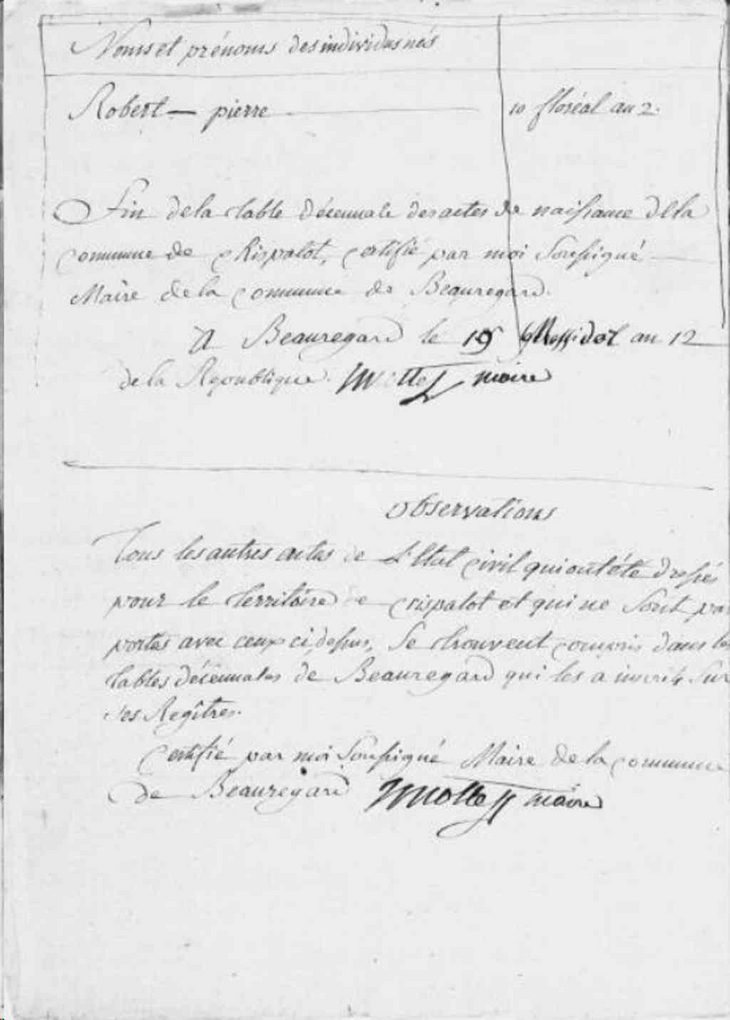 Noms et prénoms des individus nés
Robert — pierre 10 floréal an 2.
Fin de la table décennale des actes de naissance de la
commune de Crispalot, certifié par moi Soussigné
Maire de la commune de Beauregard.
A Beauregard le 19 Messidor an 12
de la République. maire
Observations
Tous les autres actes de L'Etat civil qui ont été dressés
pour le territoire de crispalot et qui ne Sont pas
portés avec ceux ci dessus, Se trouvent compris dans les
tables décennales de Beauregard qui les a inscrits Sur
ses Regîtres.
Certifié par moi Soussigné Maire de la commune
de Beauregard maire